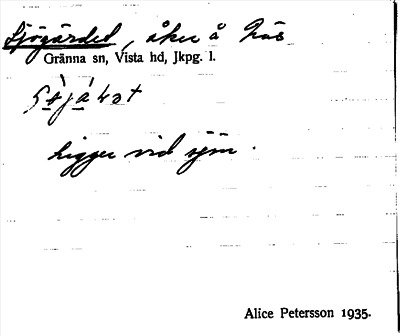 Sjögärdet, åker å Näs
Gränna sn, Vista hd, Jkpg. l.
ligger vid sjön.
Alice Petersson 1935.